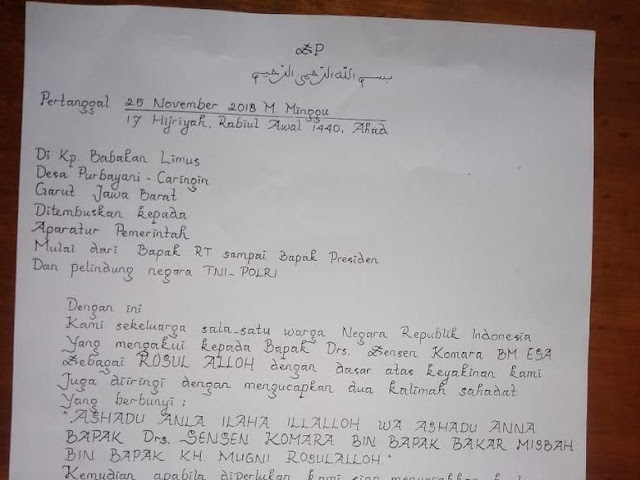 ZP
بسم الله الرحمن الرحيم
Pertanggal 25 November 2018 M. Minggu
17 Hijriyah, Rabiul Awal 1440, Ahad
Di Kp. Babakan Limus
Desa Purbayani - Caringin
Garut Jawa Barat
Ditembuskan kepada
Aparatur Pemerintah
Mulai dari Bapak RT sampai Bapak Presiden
Dan pelindung negara TNI-POLRI
Dengan ini
Kami sekeluarga sala-satu warga Negara Republik Indonesia
Yang mengakui kepada Bapak Drs. Sensen Komara BM. ESA
Sebagai ROSUL ALLOH dengan dasar atas keyakinan kami
Juga diiringi dengan mengucapkan dua kalimah sahadat
Yang berbunyi :
"ASHADU ANLA ILAHA ILLALLOH WA ASHADU ANNA
BAPAK Drs. SENSEN KOMARA BIN BAPAK BAKAR MISBAH
BIN BAPAK KH. MUGNI ROSULALLOH."
Kemudian apabila diperlukan kami siap